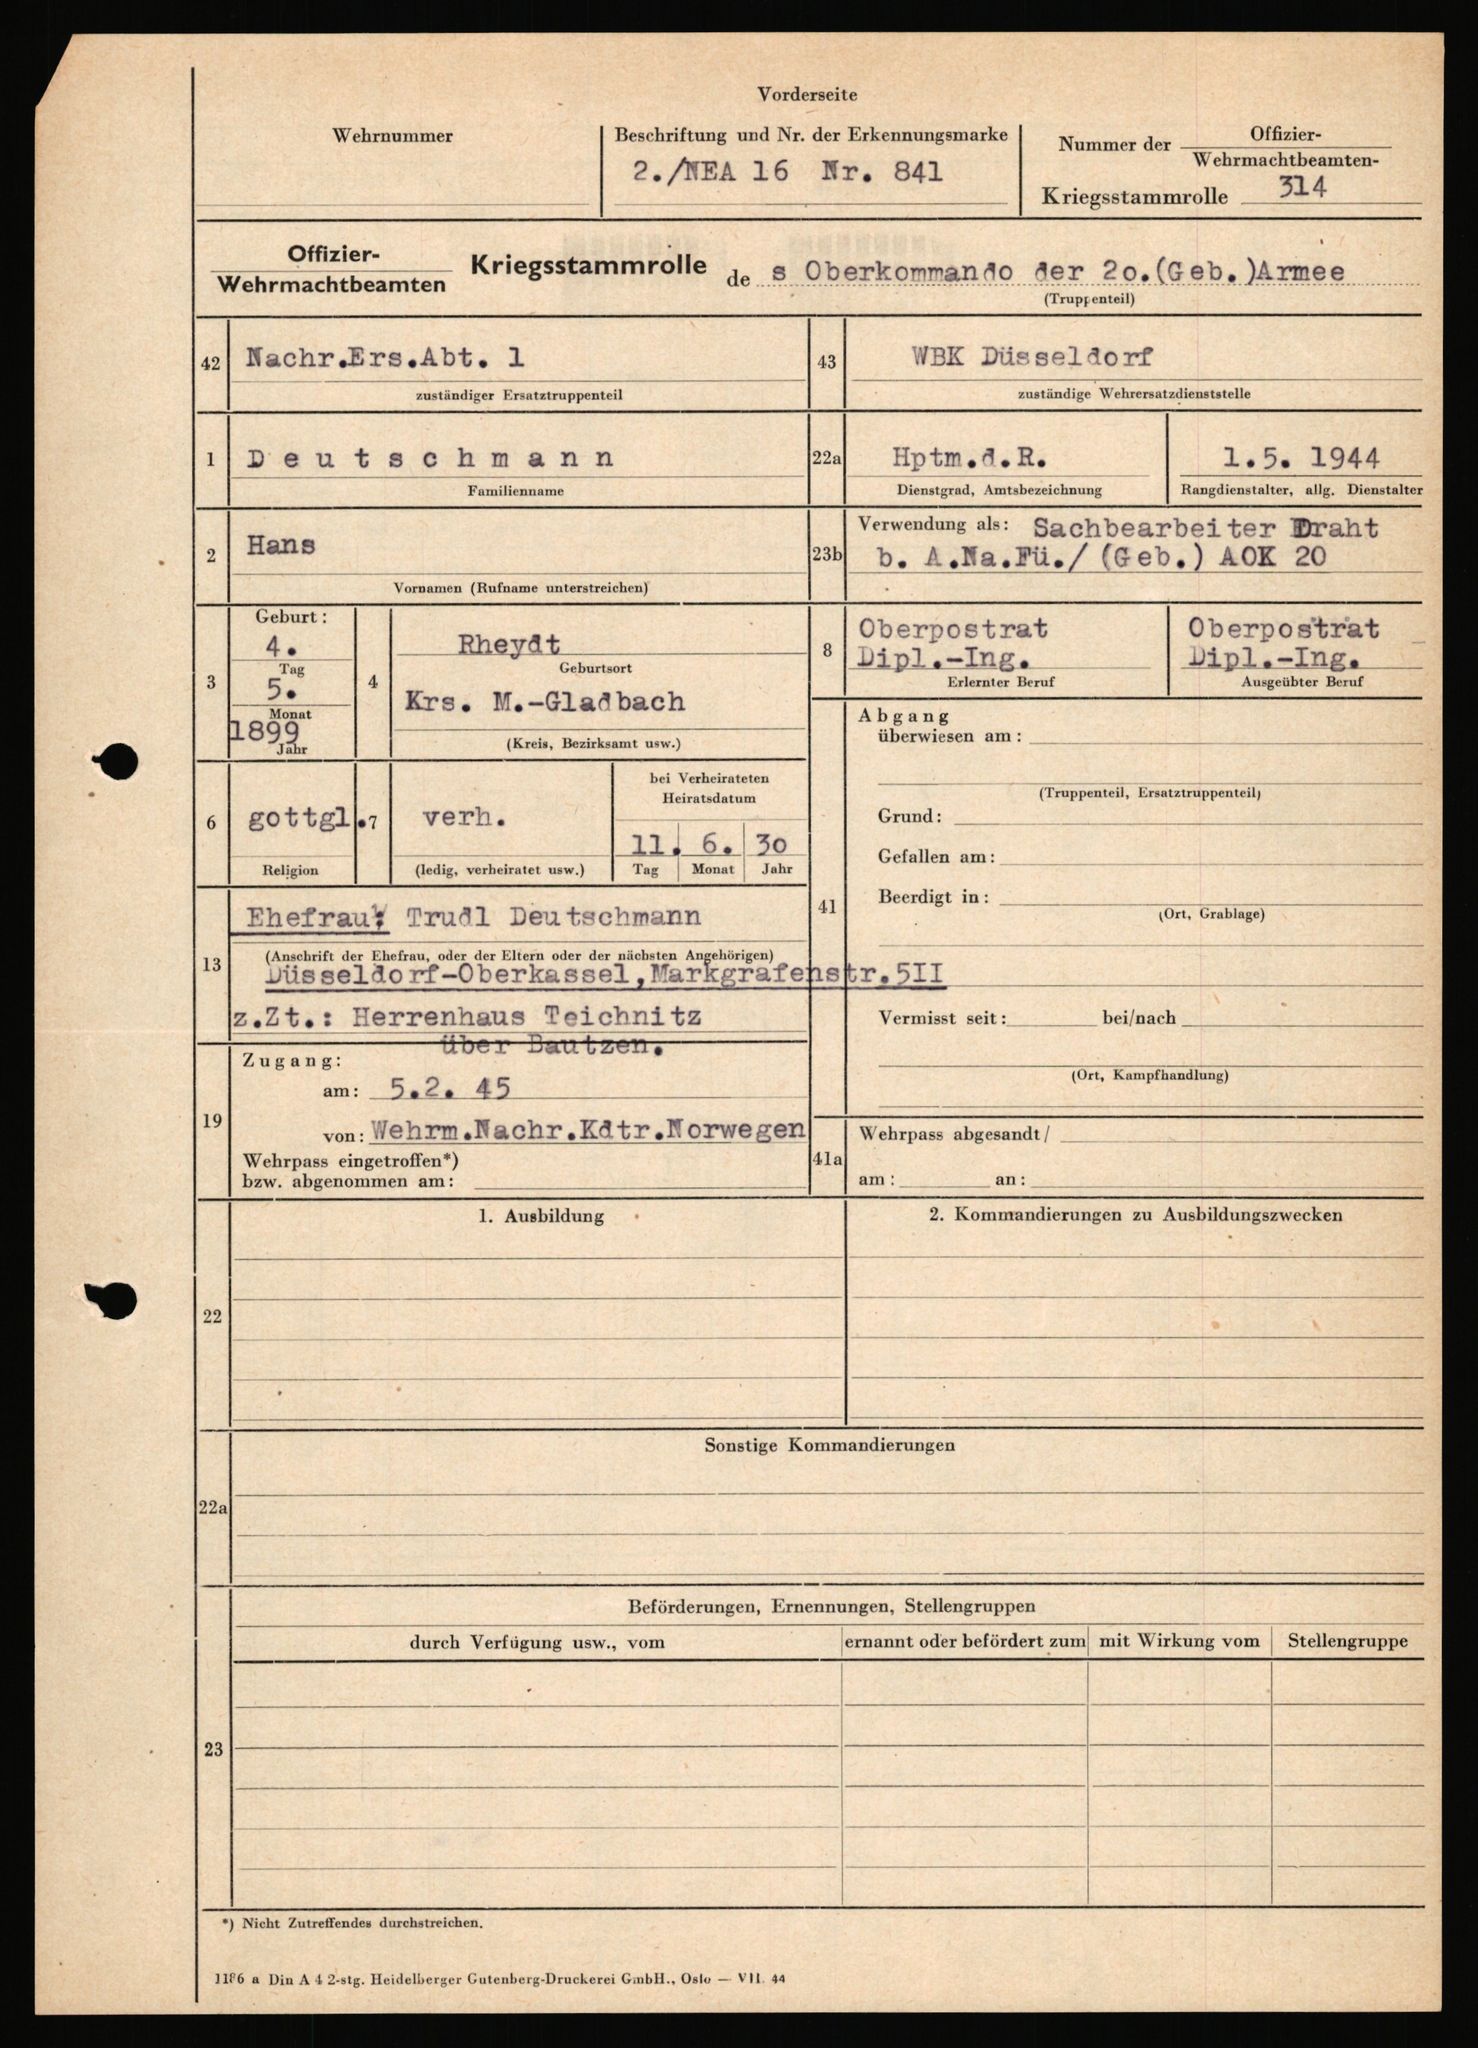 Vorderseite
Wehrnummer
Beschriftung und Nr. der Erkennungsmarke
2./NEA 16 Nr. 841
Nummer der Offizier-
Wehrmachtbeamten-
Kriegsstammrolle 314
Offizier-
Wehrmachtbeamten
Kriegsstammrolle de s Oberkommando der 2o.(Geb.)Armee
(Truppenteil)
42 Nachr.Ers.Abt. 1
zuständiger Ersatztruppenteil
43 WBK Düsseldorf
zuständige Wehrersatzdienststelle
1 D e u t s c h m a n n
Familienname
22a Hptm.d.R.
Dienstgrad, Amtsbezeichnung
1.5. 1944
Rangdienstalter, allg. Dienstalter
2 Hans
Vornamen (Rufname unterstreichen)
23b Verwendung als: Sachbearbeiter Draht
b. A.Na.Fü./ (Geb.) AOK 20
3 Geburt:
4.
Tag
5.
Monat
1899
Jahr
4 Rheydt
Geburtsort
Krs. M.-Gladbach
(Kreis, Bezirksamt usw.)
8 Oberpostrat
Dipl.-Ing.
Erlernter Beruf
Oberpostrat
Dipl.-Ing.
Ausgeübter Beruf
6 gottgl.
Religion
7 verh.
(ledig, verheiratet usw.)
bei Verheirateten
Heiratsdatum
11. 6. 30
Tag Monat Jahr
13 Ehefrau: Trudl Deutschmann
(Anschrift der Ehefrau, oder der Eltern oder der nächsten Angehörigen)
Düsseldorf-Oberkassel,Markgrafenstr.5II
z.Zt.: Herrenhaus Teichnitz
über Bautzen.
19 Zugang:
am: 5.2. 45
von: Wehrm.Nachr.Kdtr.Norwegen
Wehrpass eingetroffen*)
bzw. abgenommen am:
41 Abgang
überwiesen am:
(Truppenteil, Ersatztruppenteil)
Grund:
Gefallen am:
Beerdigt in:
(Ort, Grablage)
Vermisst seit: bei/nach
(Ort, Kampfhandlung)
41a Wehrpass abgesandt/
am: an:
22 1. Ausbildung
2. Kommandierungen zu Ausbildungszwecken
22a Sonstige Kommandierungen
23 Beförderungen, Ernennungen, Stellengruppen
durch Verfügung usw., vom
ernannt oder befördert zum
mit Wirkung vom
Stellengruppe
*) Nicht Zutreffendes durchstreichen.
1186 a Din A 4 2-stg. Heidelberger Gutenberg-Druckerei GmbH., Oslo — VII. 44